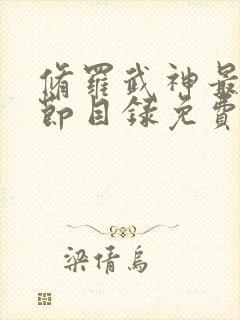 脩羅武神最
節目錄免費
梁倩烏